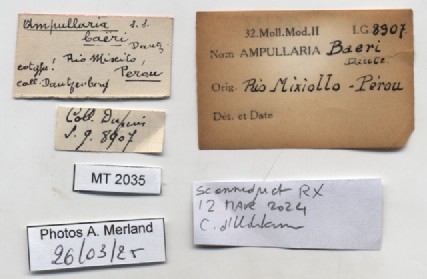 Ampullaria s.s.
baëri Dautz
cotype! Rio Mixiollo,
Pérou
coll. Dautzenberg
Coll. Dupuis
I.g. 8907
MT 2035
Photos A. Merland
26/03/25
32.Moll.Mod.II I.G 8907
Nom AMPULLARIA Baeri
Dautz.
Orig. Rio Mixiollo - Pérou
Dét. et Date
RX
12 MAR 2024